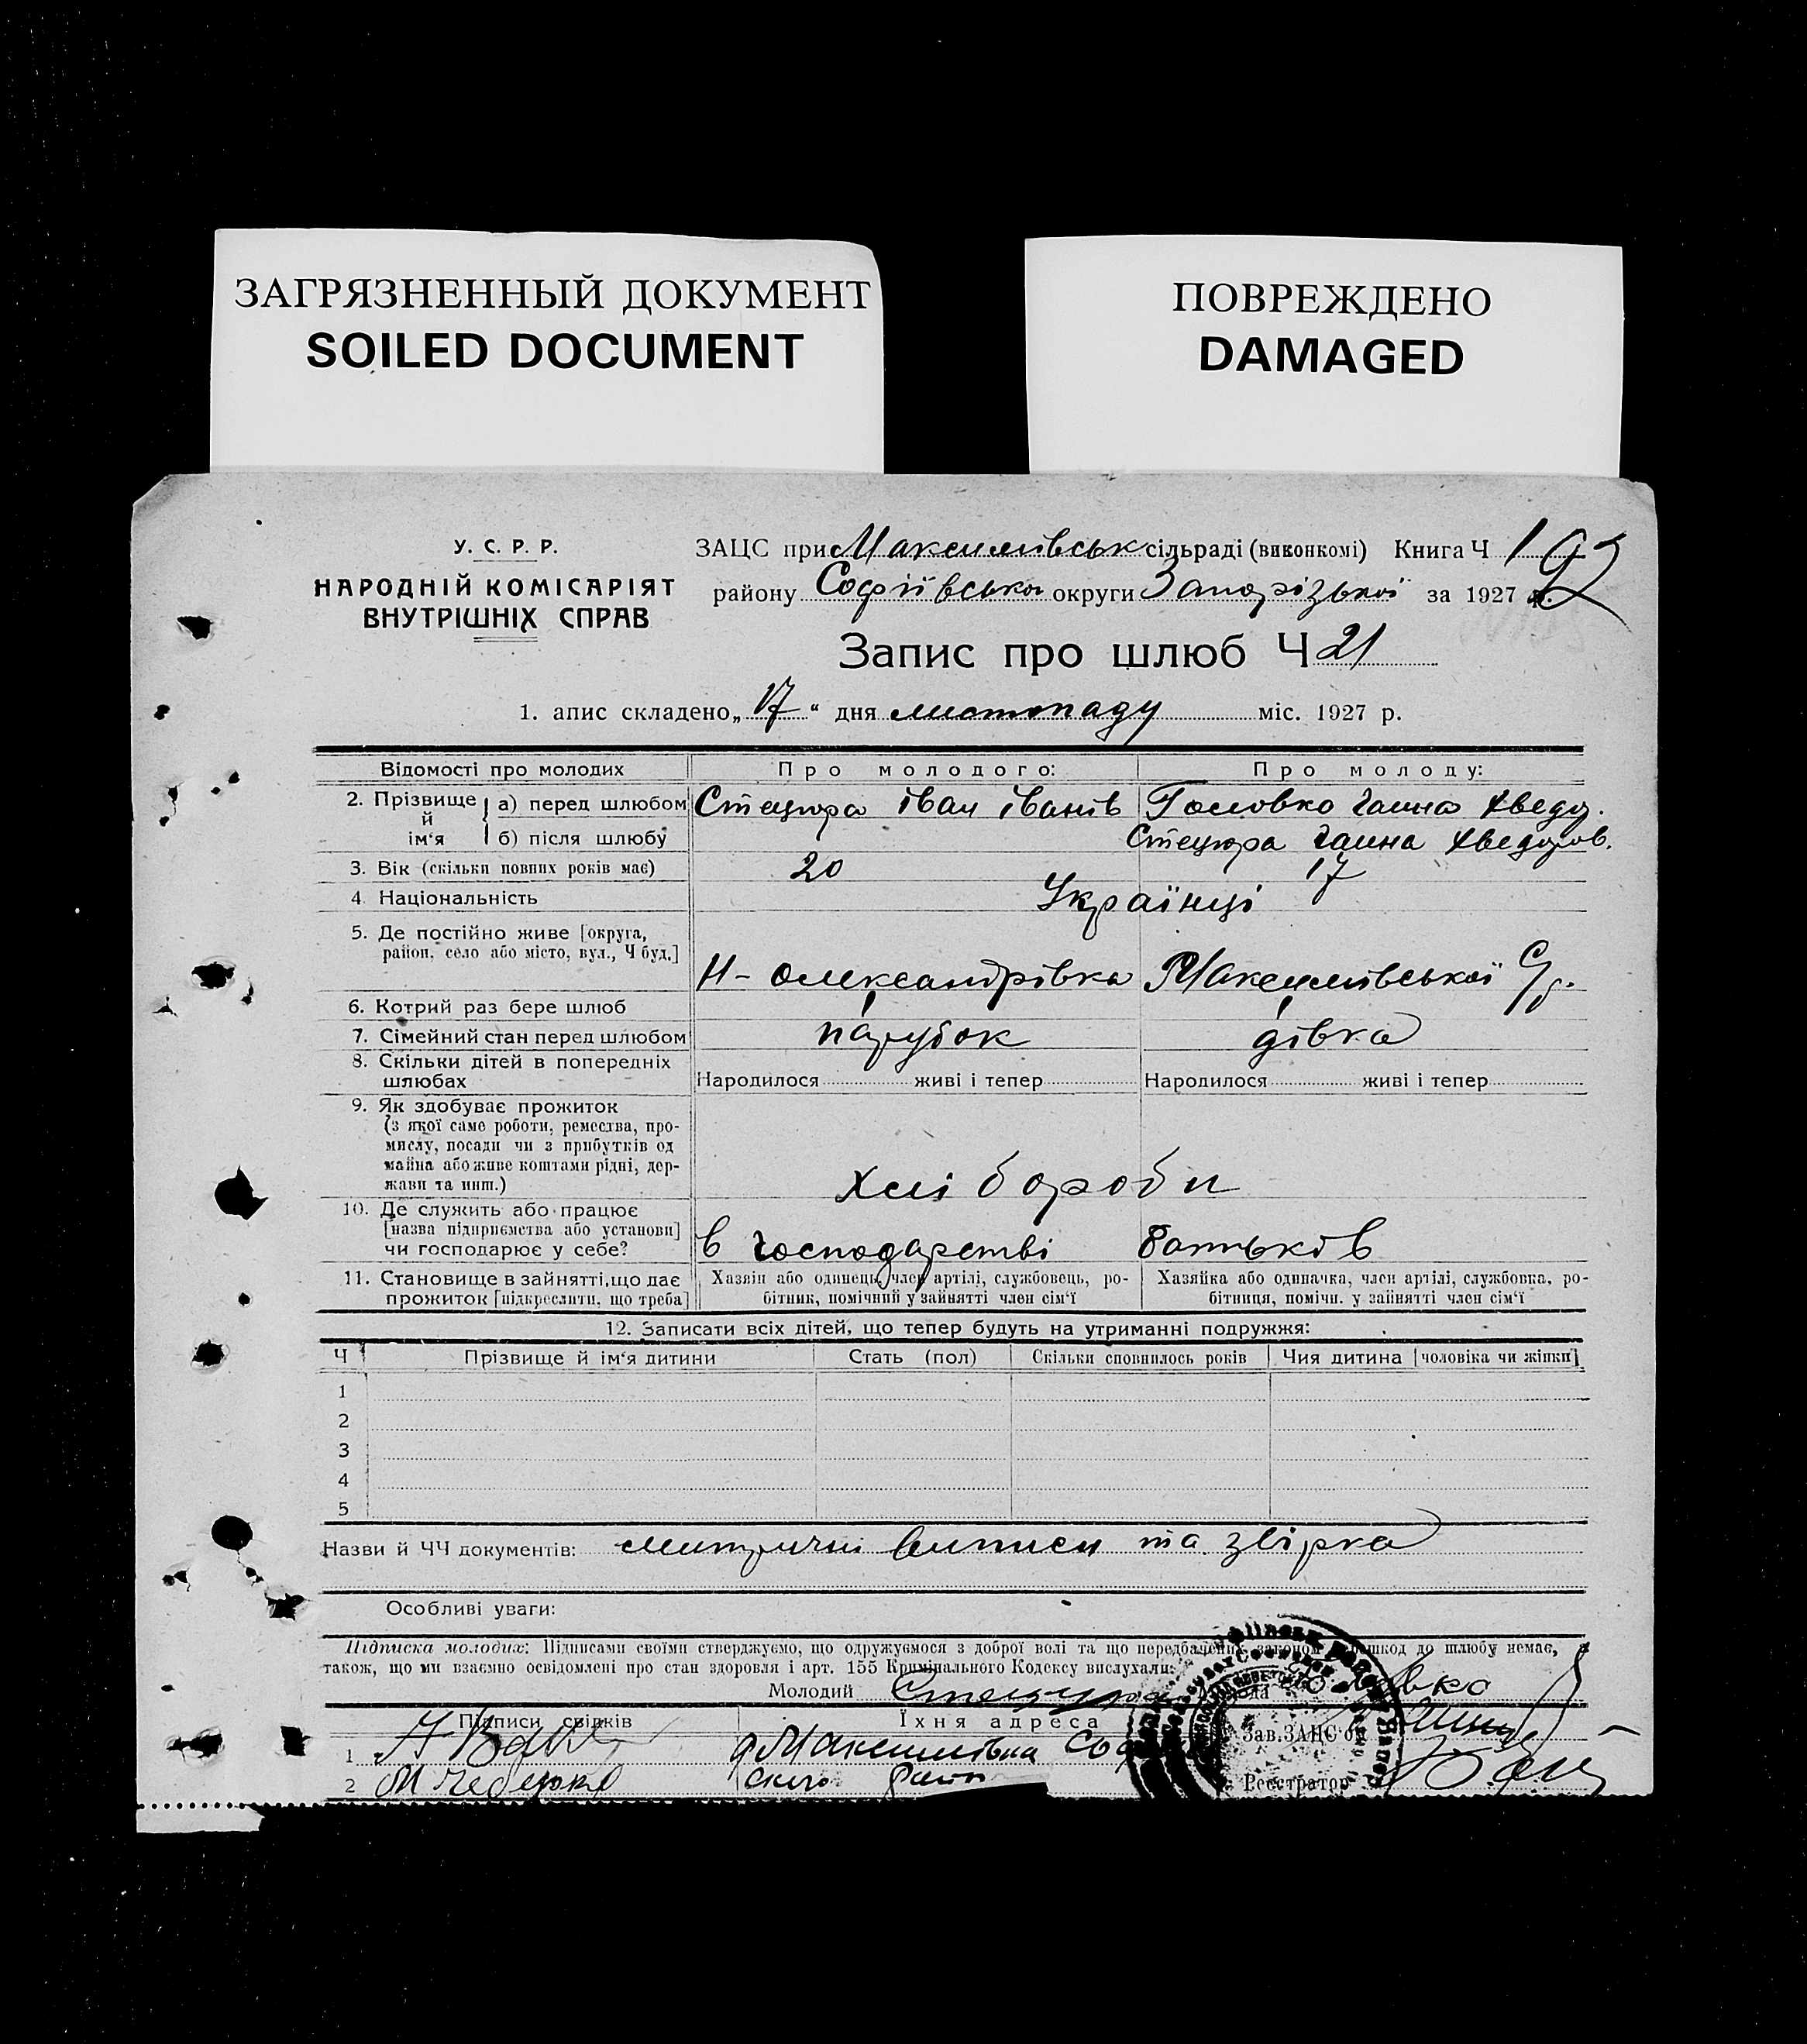 ЗАГРЯЗНЕННЫЙ ДОКУМЕНТ
SOILED DOCUMENT
ПОВРЕЖДЕНО
DAMAGED
У. С. Р. Р.
НАРОДНІЙ КОМІСАРІЯТ
ВНУТРІШНІХ СПРАВ
ЗАЦС при Максимівськ сільраді (виконкомі) Книга Ч 1
району Софіївської округи Запорізької за 1927 р.
Запис про шлюб Ч 21
1. апис складено „17“ дня листопаду міс. 1927 р.
Відомості про молодих
Про молодого:
Про молоду:
2. Прізвище й ім‘я
а) перед шлюбом
Стецюра Іван Іванів
Головко Ганна Хведо.
б) після шлюбу
Стецюра Ганна Хведоров.
3. Вік (скільки повних років має)
20
17
4. Національність
Українці
5. Де постійно живе [округа,
район, село або місто, вул., Ч буд.]
Н-Олександрівка Максимівської С/р.
6. Котрий раз бере шлюб
1
1
7. Сімейний стан перед шлюбом
парубок
дівка
8. Скільки дітей в попередніх
шлюбах
Народилося живі і тепер
Народилося живі і тепер
9. Як здобуває прожиток
(з якої саме роботи, ремества, про-
мислу, посади чи з прибутків од
майна або живе коштами рідні, дер-
жави та инш.)
хлібороби
10. Де служить або працює
[назва підприємства або установи]
чи господарює у себе?
в господарстві батьків
11. Становище в зайнятті, що дає
прожиток [підкреслити, що треба]
Хазяін або одинець, член артілі, службовець, ро-
бітник, помічний у зайнятті член сім‘ї
Хазяйка або одиначка, член артілі, службовка, ро-
бітниця, помічн. у зайнятті член сім‘ї
12. Записати всіх дітей, що тепер будуть на утриманні подружжя:
Ч
Прізвище й ім‘я дитини
Стать (пол)
Скільки сповнилось років
Чия дитина [чоловіка чи жінки]
1
2
3
4
5
Назви й ЧЧ документів: митричні виписи та звірка
Особливі уваги:
Підписка молодих: Підписами своїми стверджуємо, що одружуємося з доброї волі та що передбачених законом перешкод до шлюбу немає, а
також, що ми взаємно освідомлені про стан здоровля і арт. 155 Кримінального Кодексу вислухали:
Молодий Стецюра
Головко
Підписи свідків
Їхня адреса
Зав. ЗАЦС‘ом
1
Максимівка
2
Реєстратор